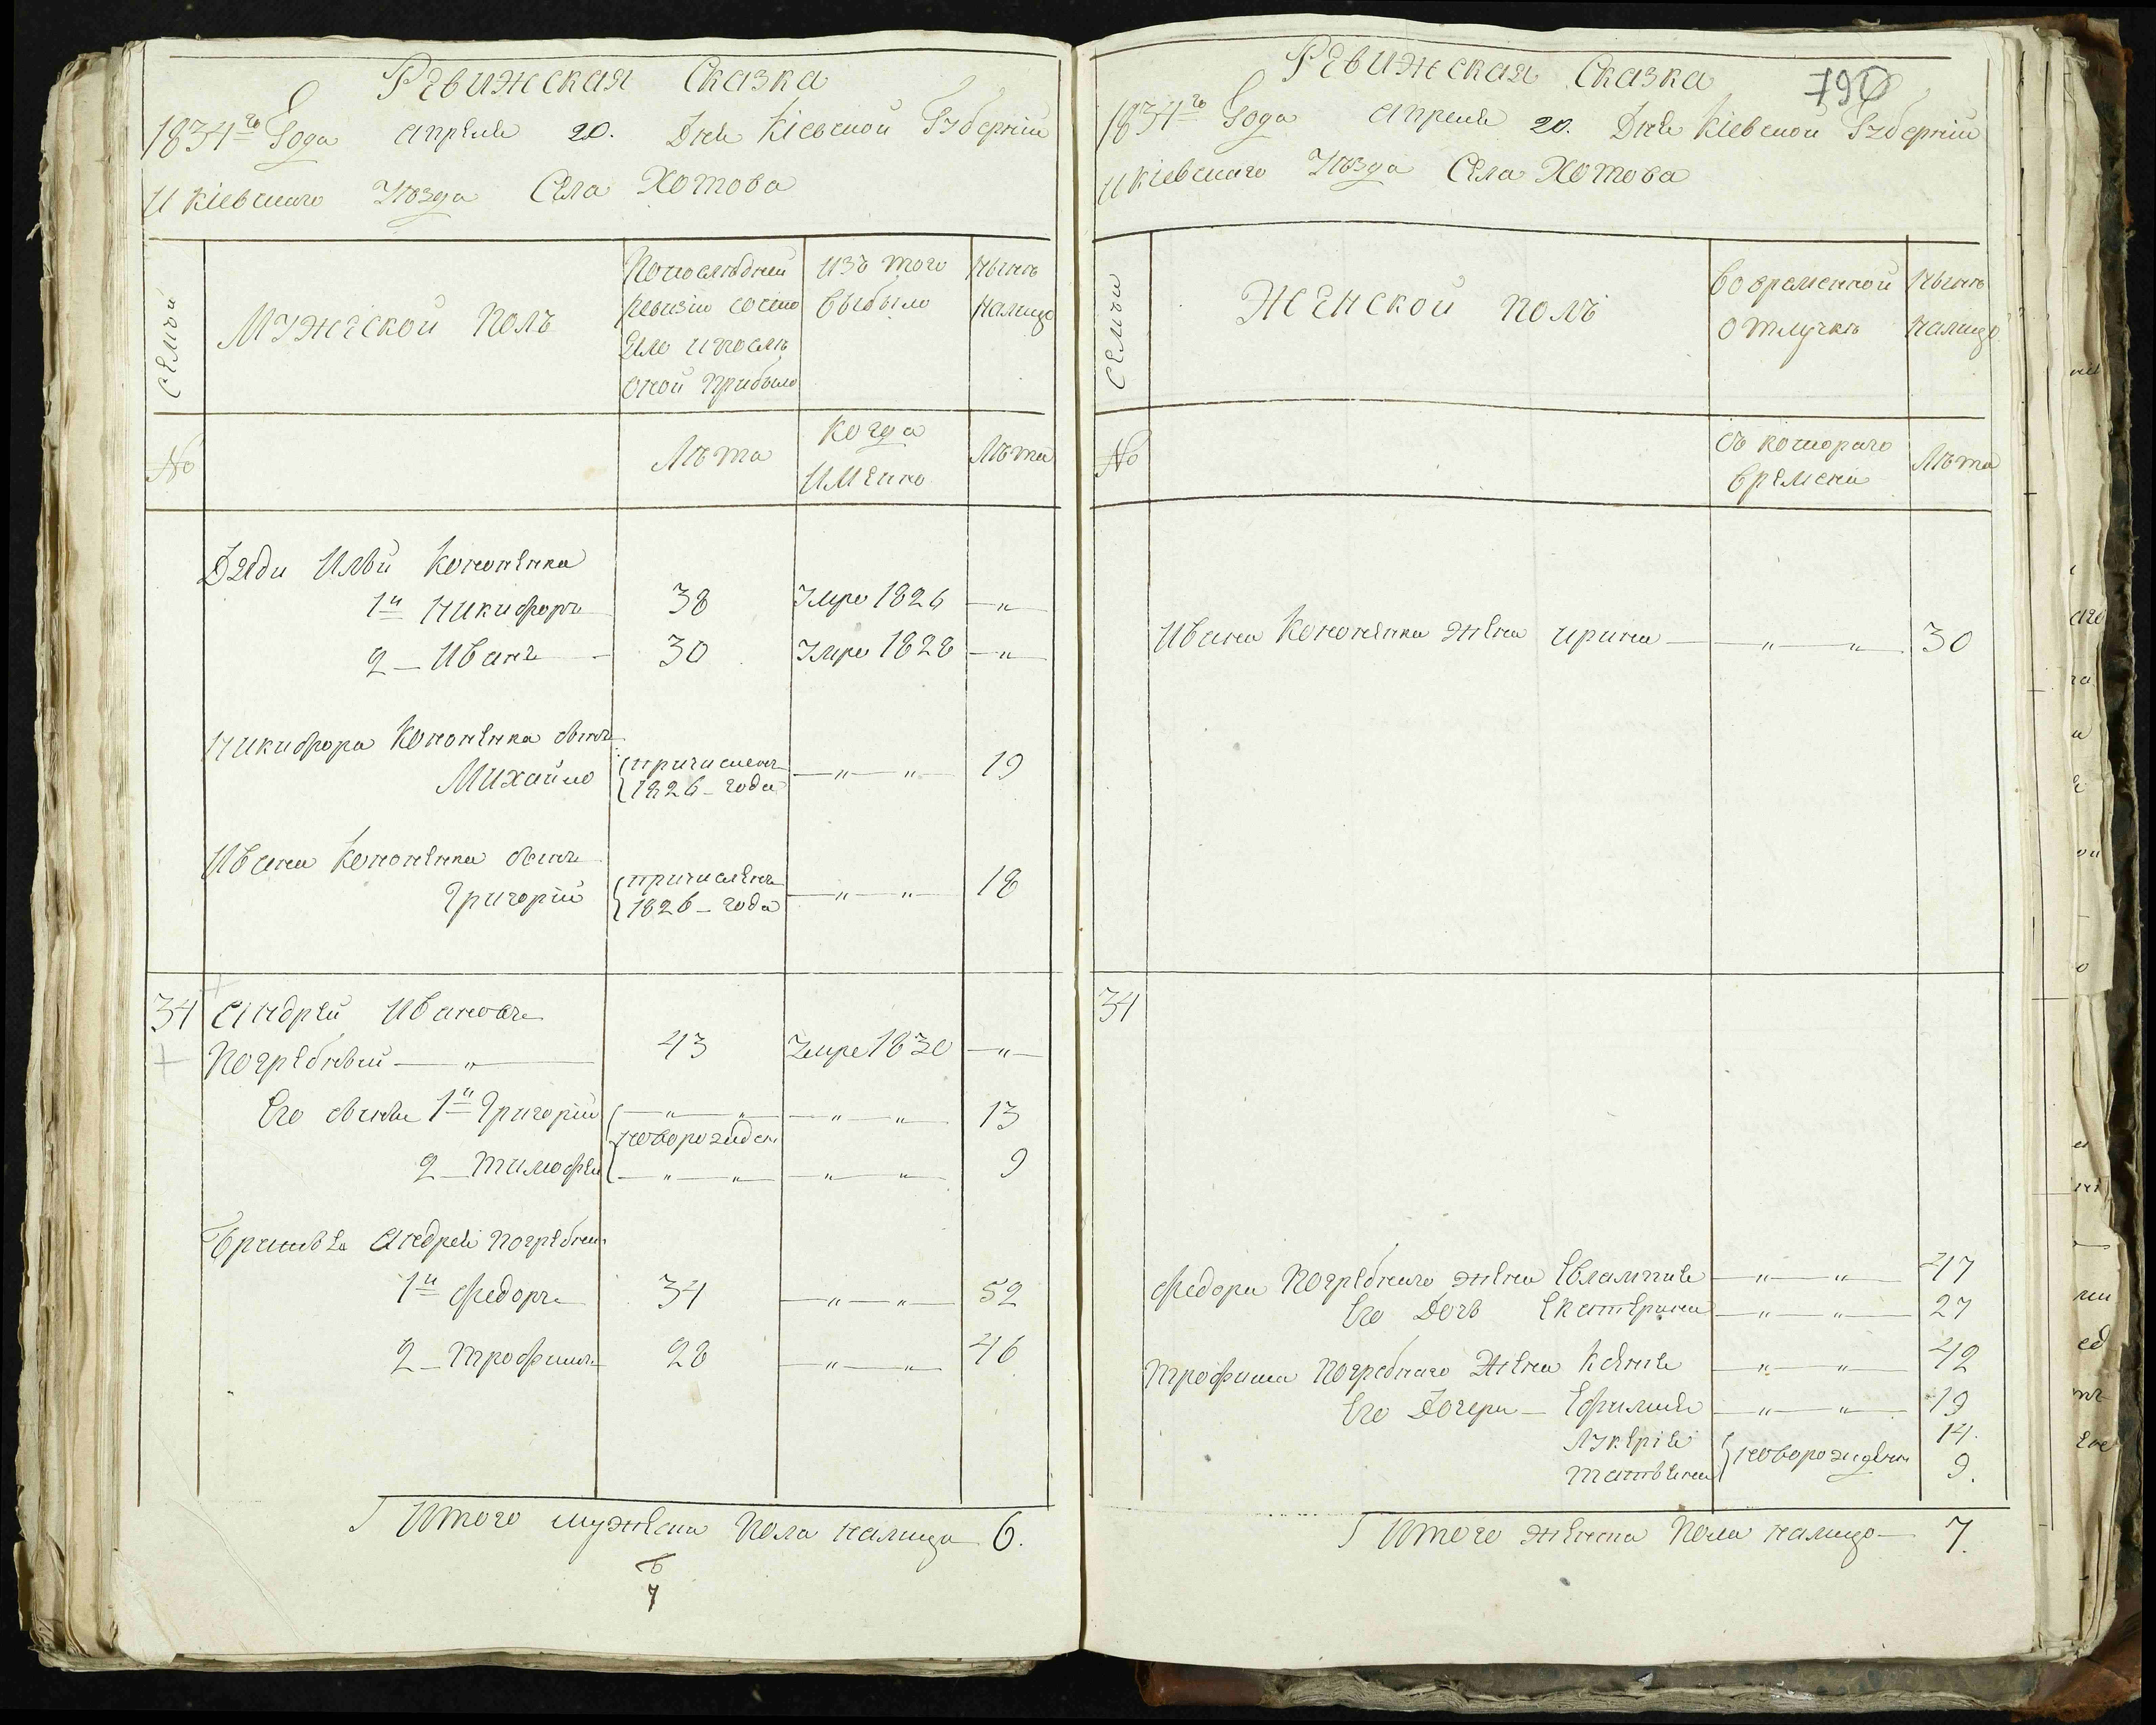 Ревижская Сказка
1834го Года Апреля 20. Дня Кіевской Губерніи
и Кіевскаго Уѣзда Села Хотова
Семьи
Мужеской полъ
По последней
ревизіи состо
яло и после
оной прибыло
изъ того
выбыло
ныне
налицо
№
Лѣта
когда
именно
Лѣта
Дяди Ильи Кононенка
1й Никифоръ 38 Умре 1826 — " —
2 — Иванъ — 30 Умре 1828 — " —
Никифора Кононенка сынъ
Михайло причисленъ 1826 — года — " — " — 19
Ивана Кононенка сынъ
Григорій причисленъ 1826 — года — " — " — 18
34 Андрей Ивановъ
Погребный — " — 43 Умре 1830 — " —
Его сыны 1й Григорій — " — " — — " — " — 13
новорожден
2 — Тимофей — " — " — — " — " — 9
Братья Андрея Погребнаго
1й Федоръ 34 — " — " — 52
2 — Трофимъ 28 — " — " — 46
Итого мужеска пола налицо 6.
6
7
790
Ревижская Сказка
1834го Года Апреля 20. Дня Кіевской Губерніи
и Кіевскаго Уѣзда Села Хотова
Семьи
Женской полъ
Во временной
отлучке
ныне
налицо
№
съ котораго
времени
Лѣта
Ивана Кононенка жена Ирина — " — " — 30
34
Федора Погребнаго жена Евлампия — " — " — 47
Его Дочь Екатерина — " — " — 27
Трофима Погребнаго Жена Ксения — " — " — 42
Его Дочери — Ефимия — " — " — 19
Лукерія 14.
новорожден
Татьяна 9.
Итого женска пола налицо — 7.